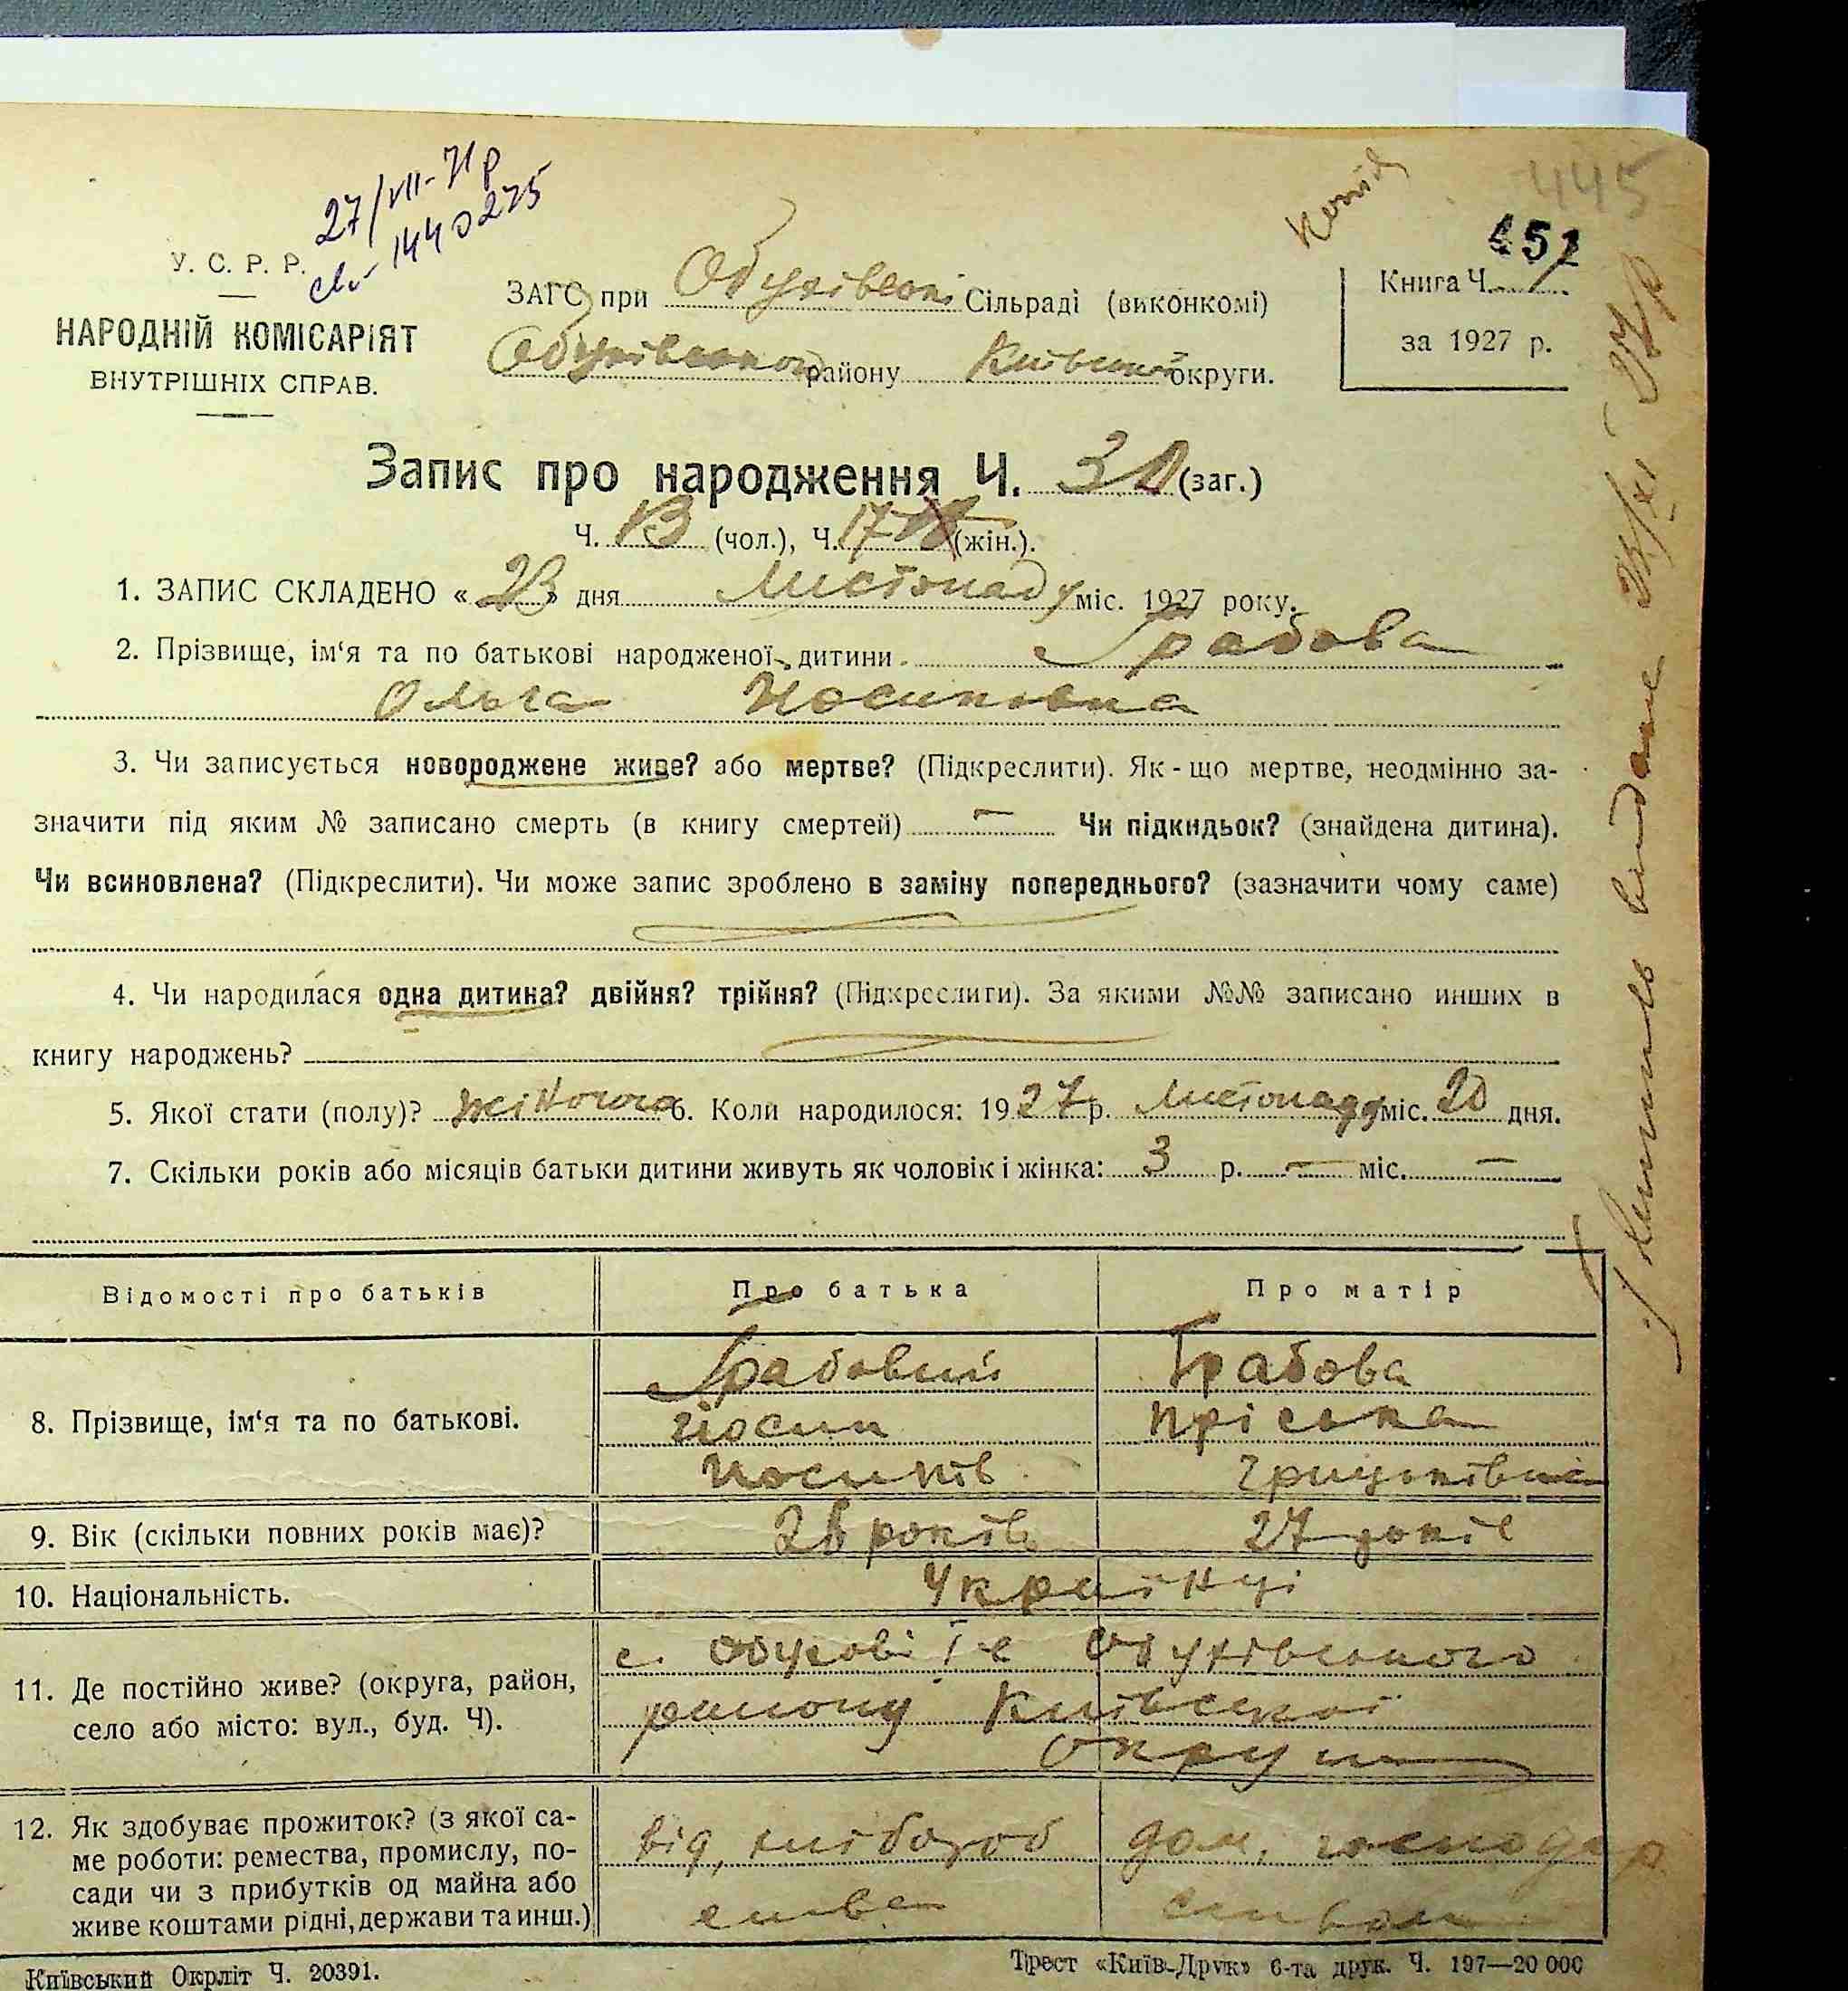 445
451
27/VII-71р
св 1440275
Копія
У. С. Р. Р.
НАРОДНІЙ КОМІСАРІЯТ
ВНУТРІШНІХ СПРАВ.
ЗАГС при Обухівські Сільраді (виконкомі)
Обухівського району Київської округи.
Книга Ч.
за 1927 р.
Запис про народження Ч. 30 (заг.)
Ч. 13 (чол.), Ч. 17 (жін.).
1. ЗАПИС СКЛАДЕНО «23» дня Листопаду міс. 1927 року.
2. Прізвище, ім‘я та по батькові народженої дитини Грабова
Ольга Иосиповна
3. Чи записується новороджене живе? або мертве? (Підкреслити). Як-що мертве, неодмінно за-
значити під яким № записано смерть (в книгу смертей) — Чи підкидьок? (знайдена дитина).
Чи всиновлена? (Підкреслити). Чи може запис зроблено в заміну попереднього? (зазначити чому саме)
4. Чи народилася одна дитина? двійня? трійня? (Підкреслити). За якими №№ записано инших в
книгу народжень?
5. Якої стати (полу)? жіночоа 6. Коли народилося: 1927 р. Листопаду міс. 20 дня.
7. Скільки років або місяців батьки дитини живуть як чоловік і жінка: 3 р. — міс. —
Відомості про батьків Про батька Про матір
8. Прізвище, ім‘я та по батькові.
Грабовий Грабова
Йосип Пріська
Иосипів Грицьківна
9. Вік (скільки повних років має)? 28 років 27 років
10. Національність. Українці
11. Де постійно живе? (округа, район,
село або місто: вул., буд. Ч).
с. Обухові Обухівського
району Київської
округи
12. Як здобуває прожиток? (з якої са-
ме роботи: ремества, промислу, по-
сади чи з прибутків од майна або
живе коштами рідні, держави та инш.)
від, хлібороб дом, господар
ства ством
Київський Окрліт Ч. 20391.
Трест «Київ-Друк» 6-та друк. Ч. 197—20 000
видане 23/XI 27р